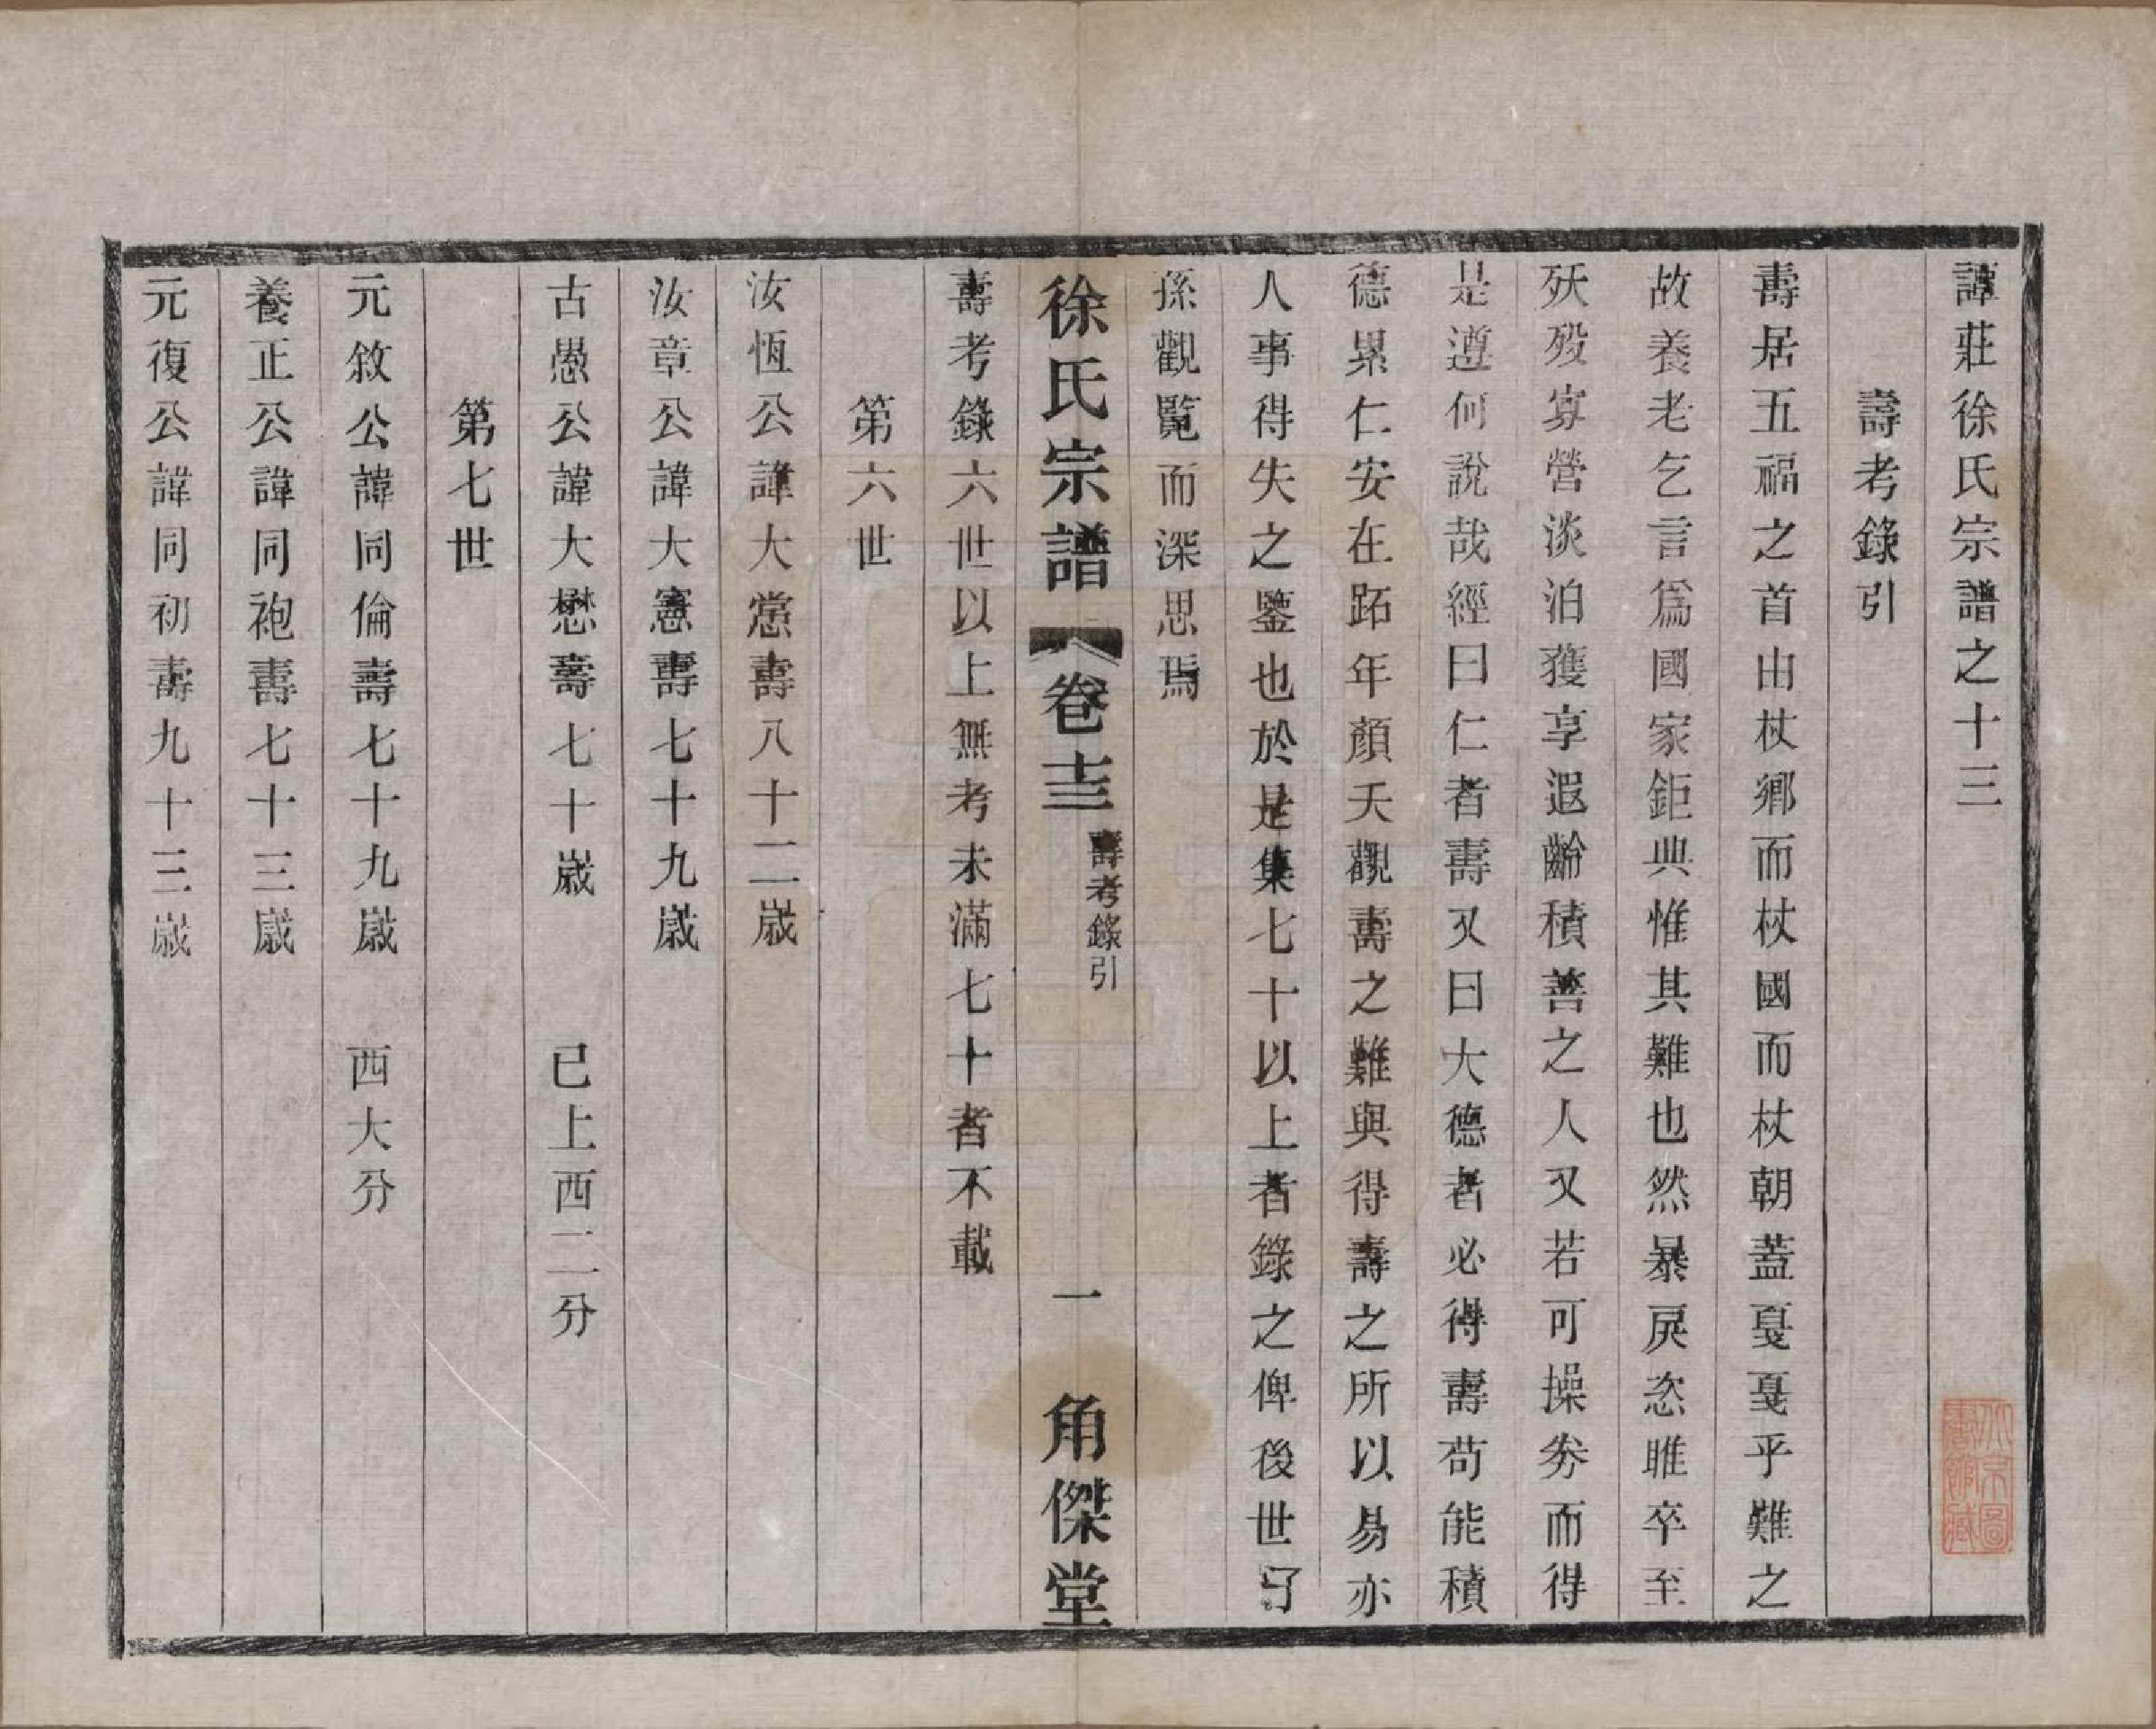 譚莊徐氏宗譜之十三
壽考錄引
壽居五福之首由杖鄉而杖國而杖朝蓋戛戛乎難之
故養老乞言爲國家鉅典惟其難也然暴戾恣睢卒至
殀歿寡營淡泊獲享遐齡積善之人又若可操券而得
是遵何說哉經曰仁者壽又曰大德者必得壽苟能積
德累仁安在跖年顏夭觀壽之難與得壽之所以易亦
人事得失之鑒也於是集七十以上者錄之俾後世子
孫觀覽而深思焉
徐氏宗譜 卷十三 壽考錄引 一 角傑堂
壽考錄六世以上無考未滿七十者不載
第六世
汝恆公諱大鴬壽八十二歲
汝章公諱大憲壽七十九歲
古愚公諱大懋壽七十歲 已上西二分
第七世
元敘公諱同倫壽七十九歲 西大分
養正公諱同袍壽七十三歲
元復公諱同初壽九十三歲